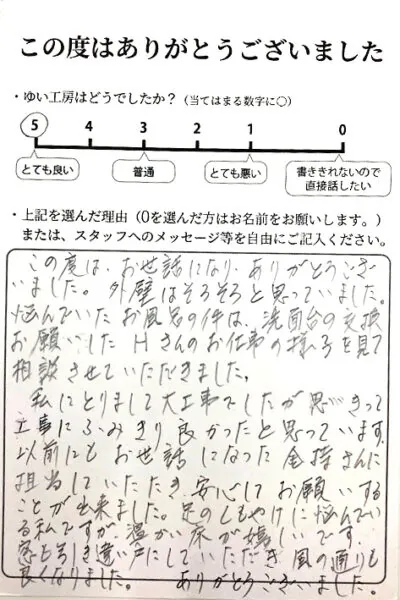 この度はありがとうございました
・ゆい工房はどうでしたか？（当てはまる数字に○）
5 4 3 2 1 0
とても良い 普通 とても悪い 書ききれないので直接話したい
・上記を選んだ理由（0を選んだ方はお名前をお願いします。）
または、スタッフへのメッセージ等を自由にご記入ください。
この度は、お世話になり、ありがとうござい
ました。外壁はそろそろと思っていました。
悩んでいたお風呂の件は、洗面台の交換
お願いした Hさんのお仕事の様子を見て
相談させていただきました。
私にとりまして大工事でしたが思いきって
工事にふみきり良かったと思っています。
以前にもお世話になった金持さんに
担当していただき、安心してお願いする
ことが出来ました。足のしもやけに悩んでい
る私ですが、温かい床が嬉しいです。
窓も引き違い戸にしていただき、風の通りも
良くなりました。 ありがとうございました。